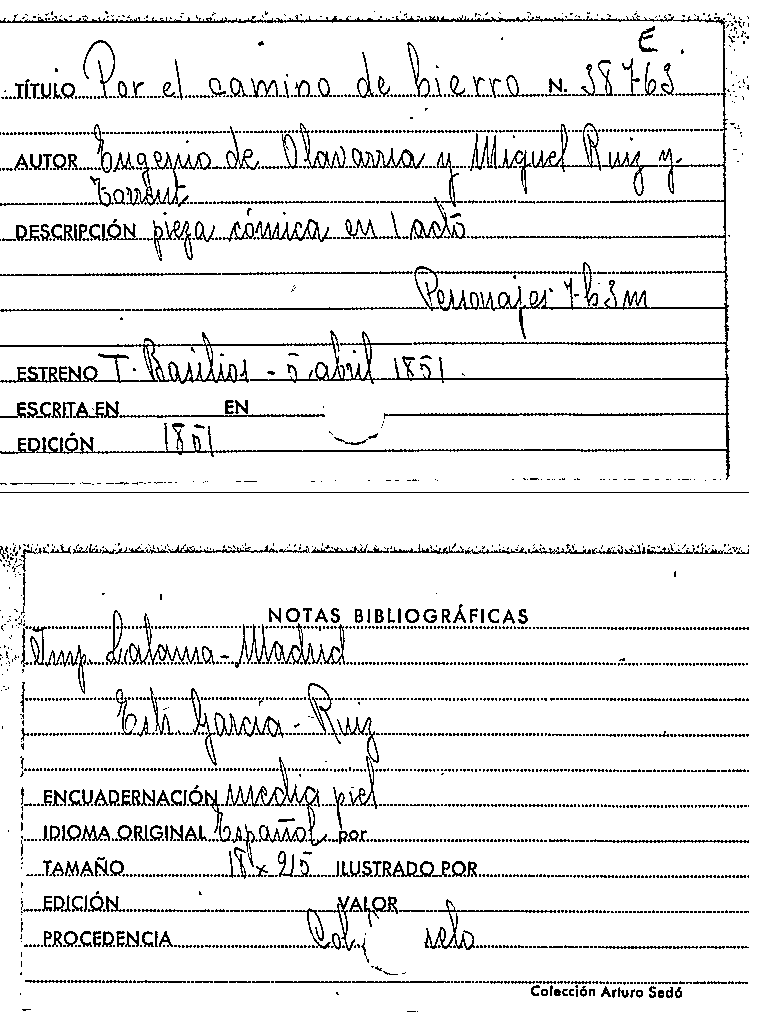 E
TÍTULO Por el camino de hierro N. 38763
AUTOR Eugenio de Olavarria y Miguel Ruiz y
Torrent
DESCRIPCIÓN pieza cómica en 1 acto
Personajes 7-h 3 m
ESTRENO T. Basilios - 5, abril 1851.
ESCRITA EN EN
EDICIÓN 1851
NOTAS BIBLIOGRÁFICAS
Imp. Lalama - Madrid
Estr. García - Ruiz
ENCUADERNACIÓN media piel
IDIOMA ORIGINAL Español por
TAMAÑO 18 x ILUSTRADO POR
EDICIÓN VALOR
PROCEDENCIA
Colección Arturo Sedó